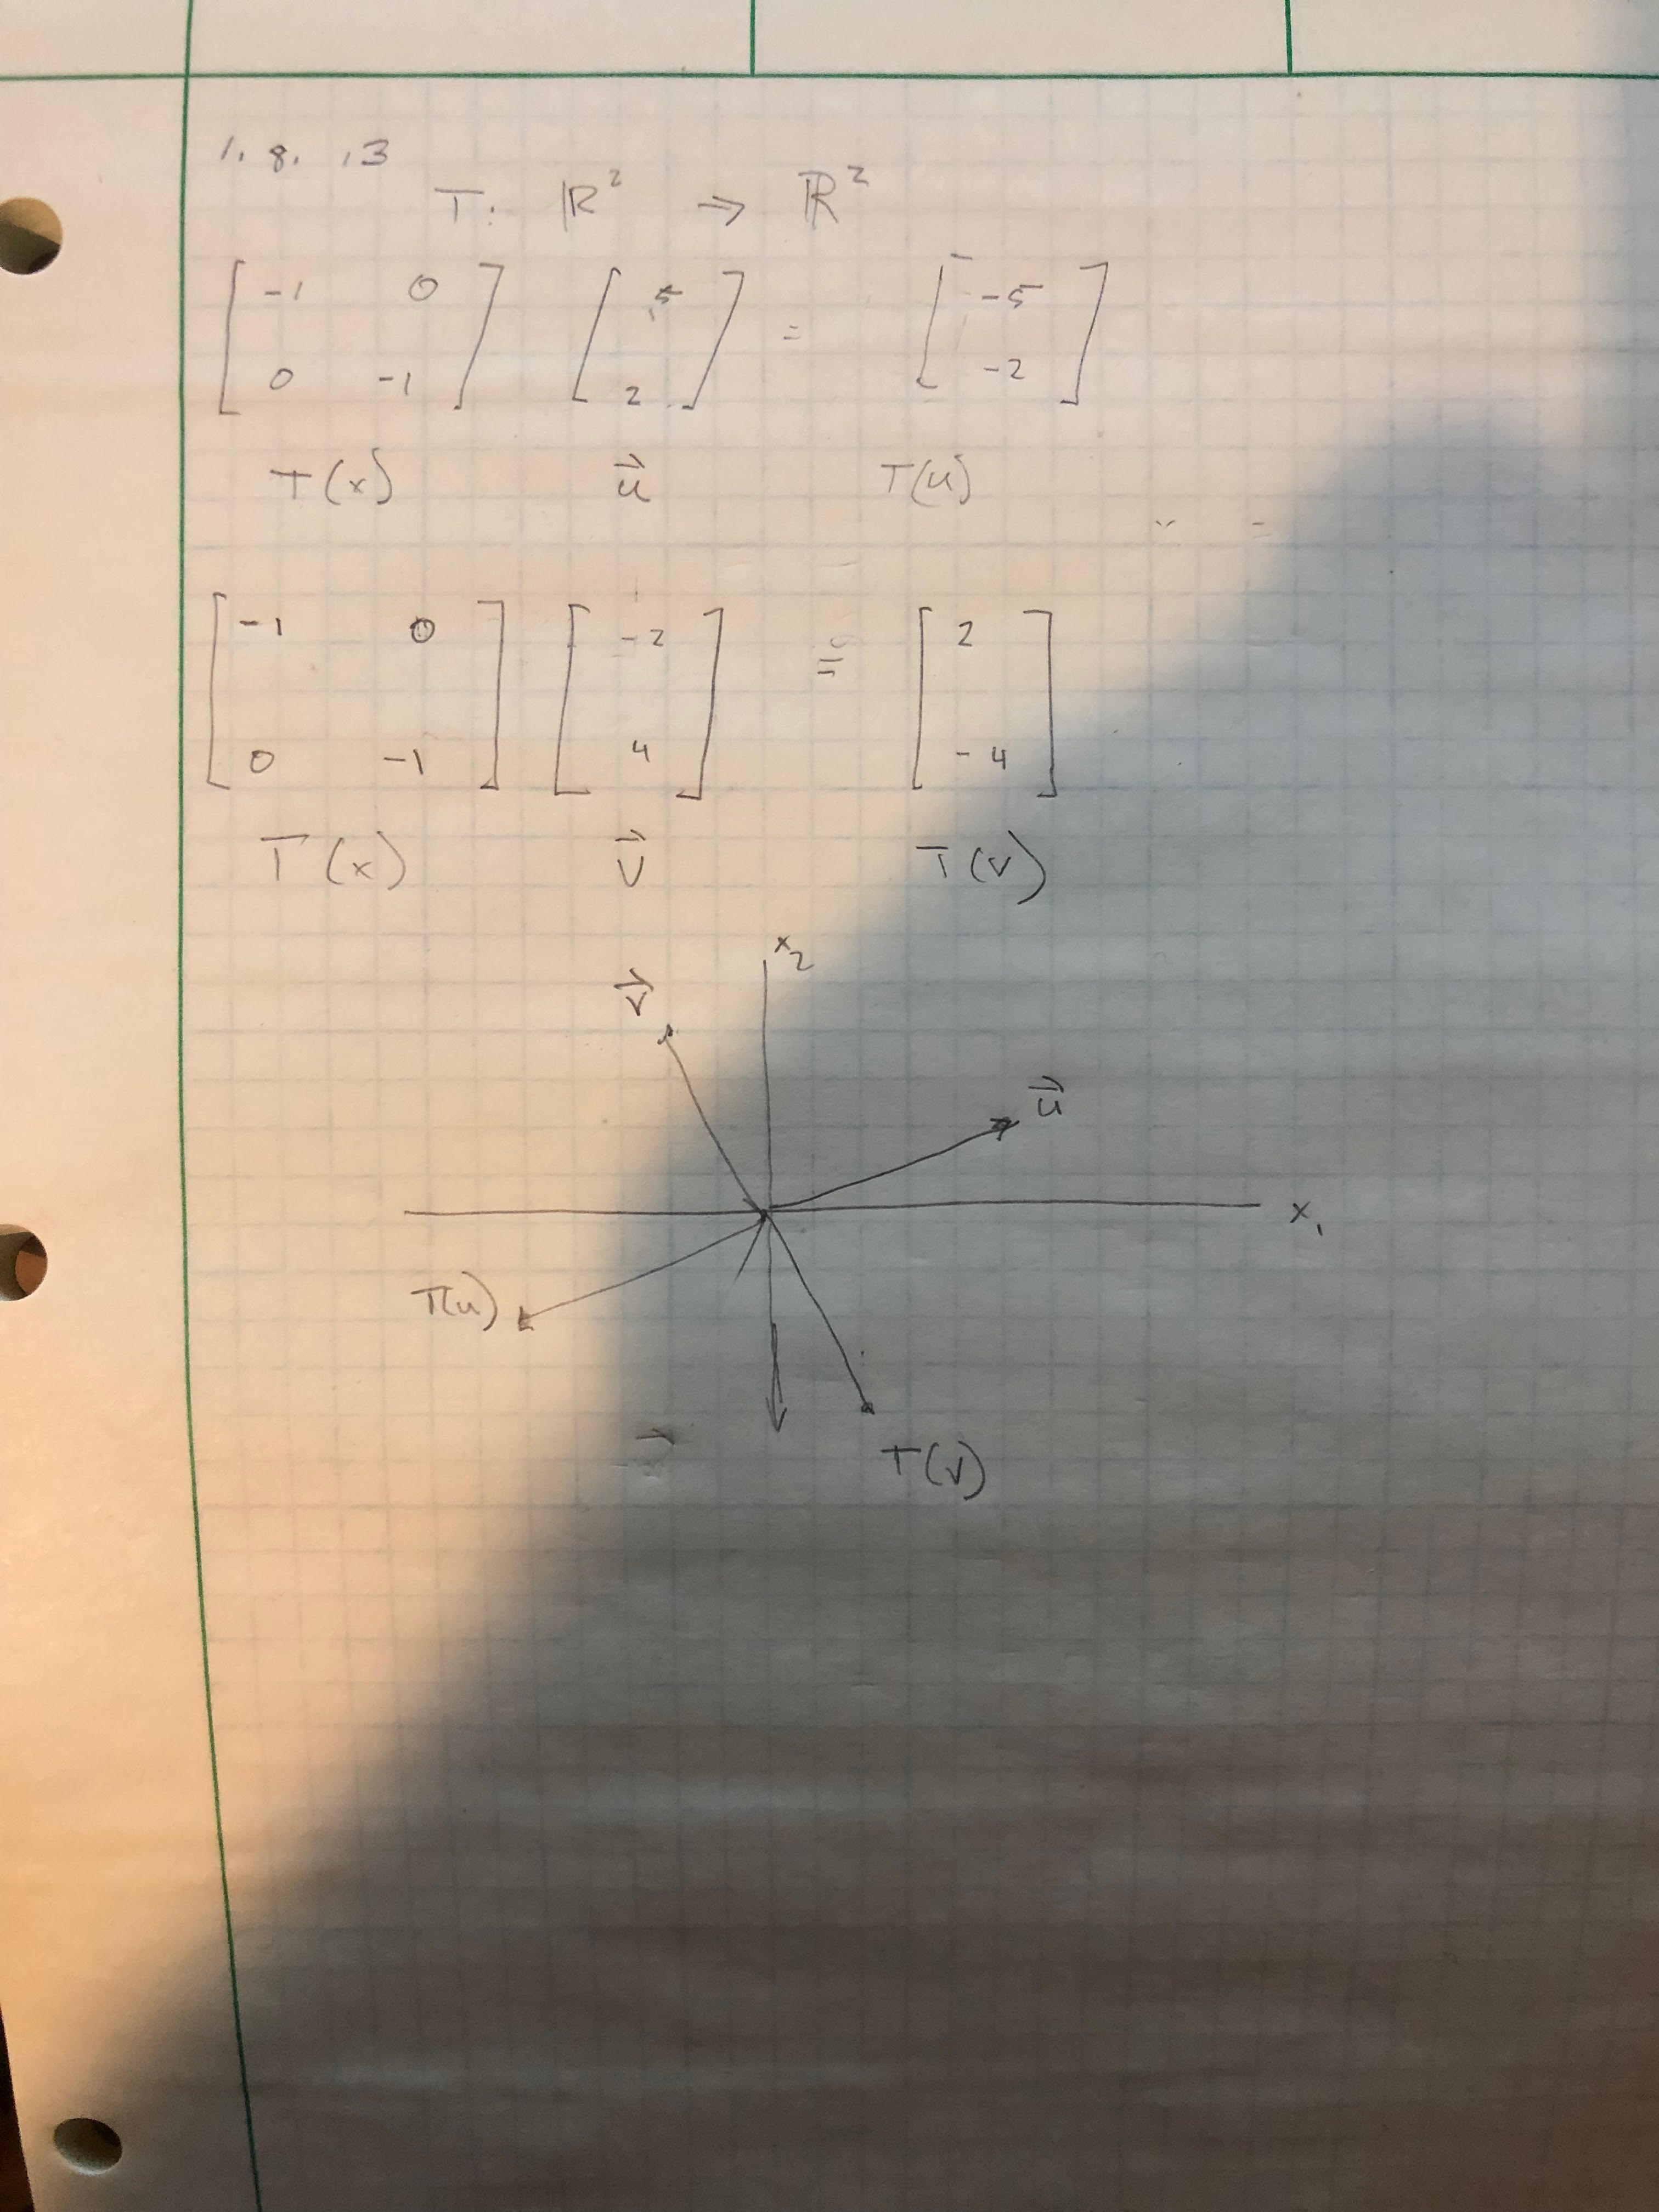 1.8.13
T: ℝ² → ℝ²
[ -1 0 ; 0 -1 ] [ 5 ; 2 ] = [ -5 ; -2 ]
T(x) u⃗ T(u)
[ -1 0 ; 0 -1 ] [ -2 ; 4 ] = [ 2 ; -4 ]
T(x) v⃗ T(v)
x₂
v⃗
u⃗
x₁
T(u)
T(v)